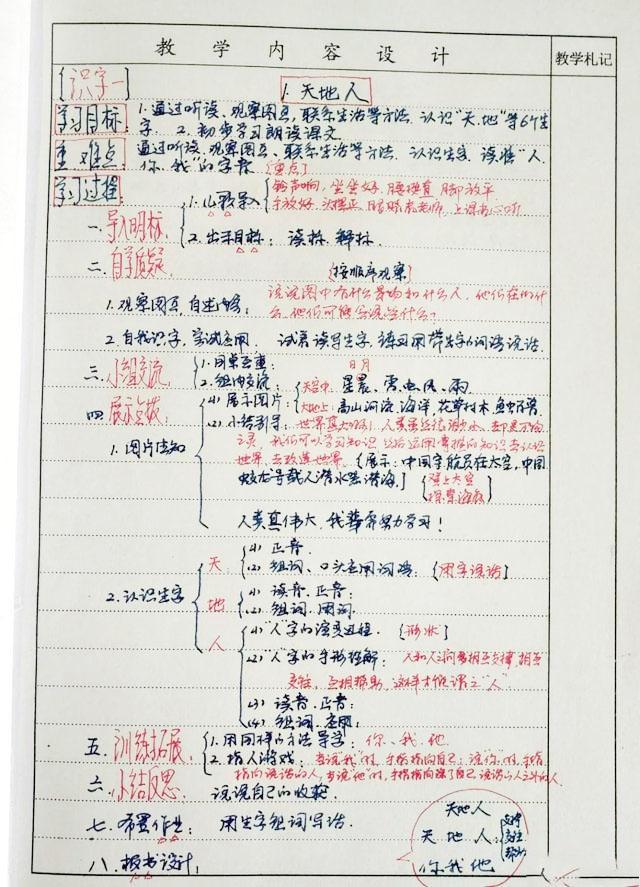 教学内容设计
教学札记
[识字一]
1. 天地人
学习目标: 1. 通过听读、观察图画, 联系生活等方法, 认识"天、地"等6个生
字. 2. 初步学习朗读课文
重难点: 通过听读、观察图画、联系生活等方法, 认识生字, 读准"人、
你、我"的字音 [重点]
学习过程:
一、导入明标.
1. 山歌导入 铃声响, 坐坐好, 腰挺直, 脚放平
手放好, 头摆正, 眼睛看老师, 上课
2. 出示目标: 读标、释标.
二、自学质疑 [按顺序观察]
1. 观察图画, 自主 说说图中有什么景物和什么人, 他们在干什
么, 他们可能会说些什么?
2. 自我识字, 尝试应用. 试着读写生字, 练习用带生字的词语说话.
三、小组交流
1. 同桌
2. 组内交流
日月
四、展示点拨
1. 图片感知
(1) 展示图片: 天空中: 星晨、雷、电、风、雨.
大地上: 高山河流、海洋、花草树木、鱼虫
(2) 小结引导: 世界真大呀! 人类虽
之灵, 我们可以学习知识 运用掌握的知识去认识
世界, 去改造世界. [展示: 中国宇航员在太空, 中国
蛟龙号载人潜水器潜海.] [登上太空
探索海底]
人类真伟大, 我要努力学习!
2. 认识生字
天 (1) 正音.
(2) 组词、口头应用词语. [用字说话]
地 (1) 读音、正音:
(2) 组词、用词
人 (1) "人"字的演变过程. [形状]
(2) "人"字的字形理解: 人和人之间要相互支撑, 相互
支柱, 互相帮助, 这样才能谓之"人"
(3) 读音、正音:
(4) 组词、应用
五、训练拓展
1. 用同样的方法导学: 你、我、他
2. 指人游戏: 当说"我"时, 手指指向自己; 说"你"时, 手指
指向说话的人, 当说"他"时, 手指指向除了自己、说话的人之外的人
六、小结反思 说说自己的收获
七、布置作业: 用生字组词写话.
八、板书设计:
天地人
天 地 人 支撑
支柱
帮助
你我他